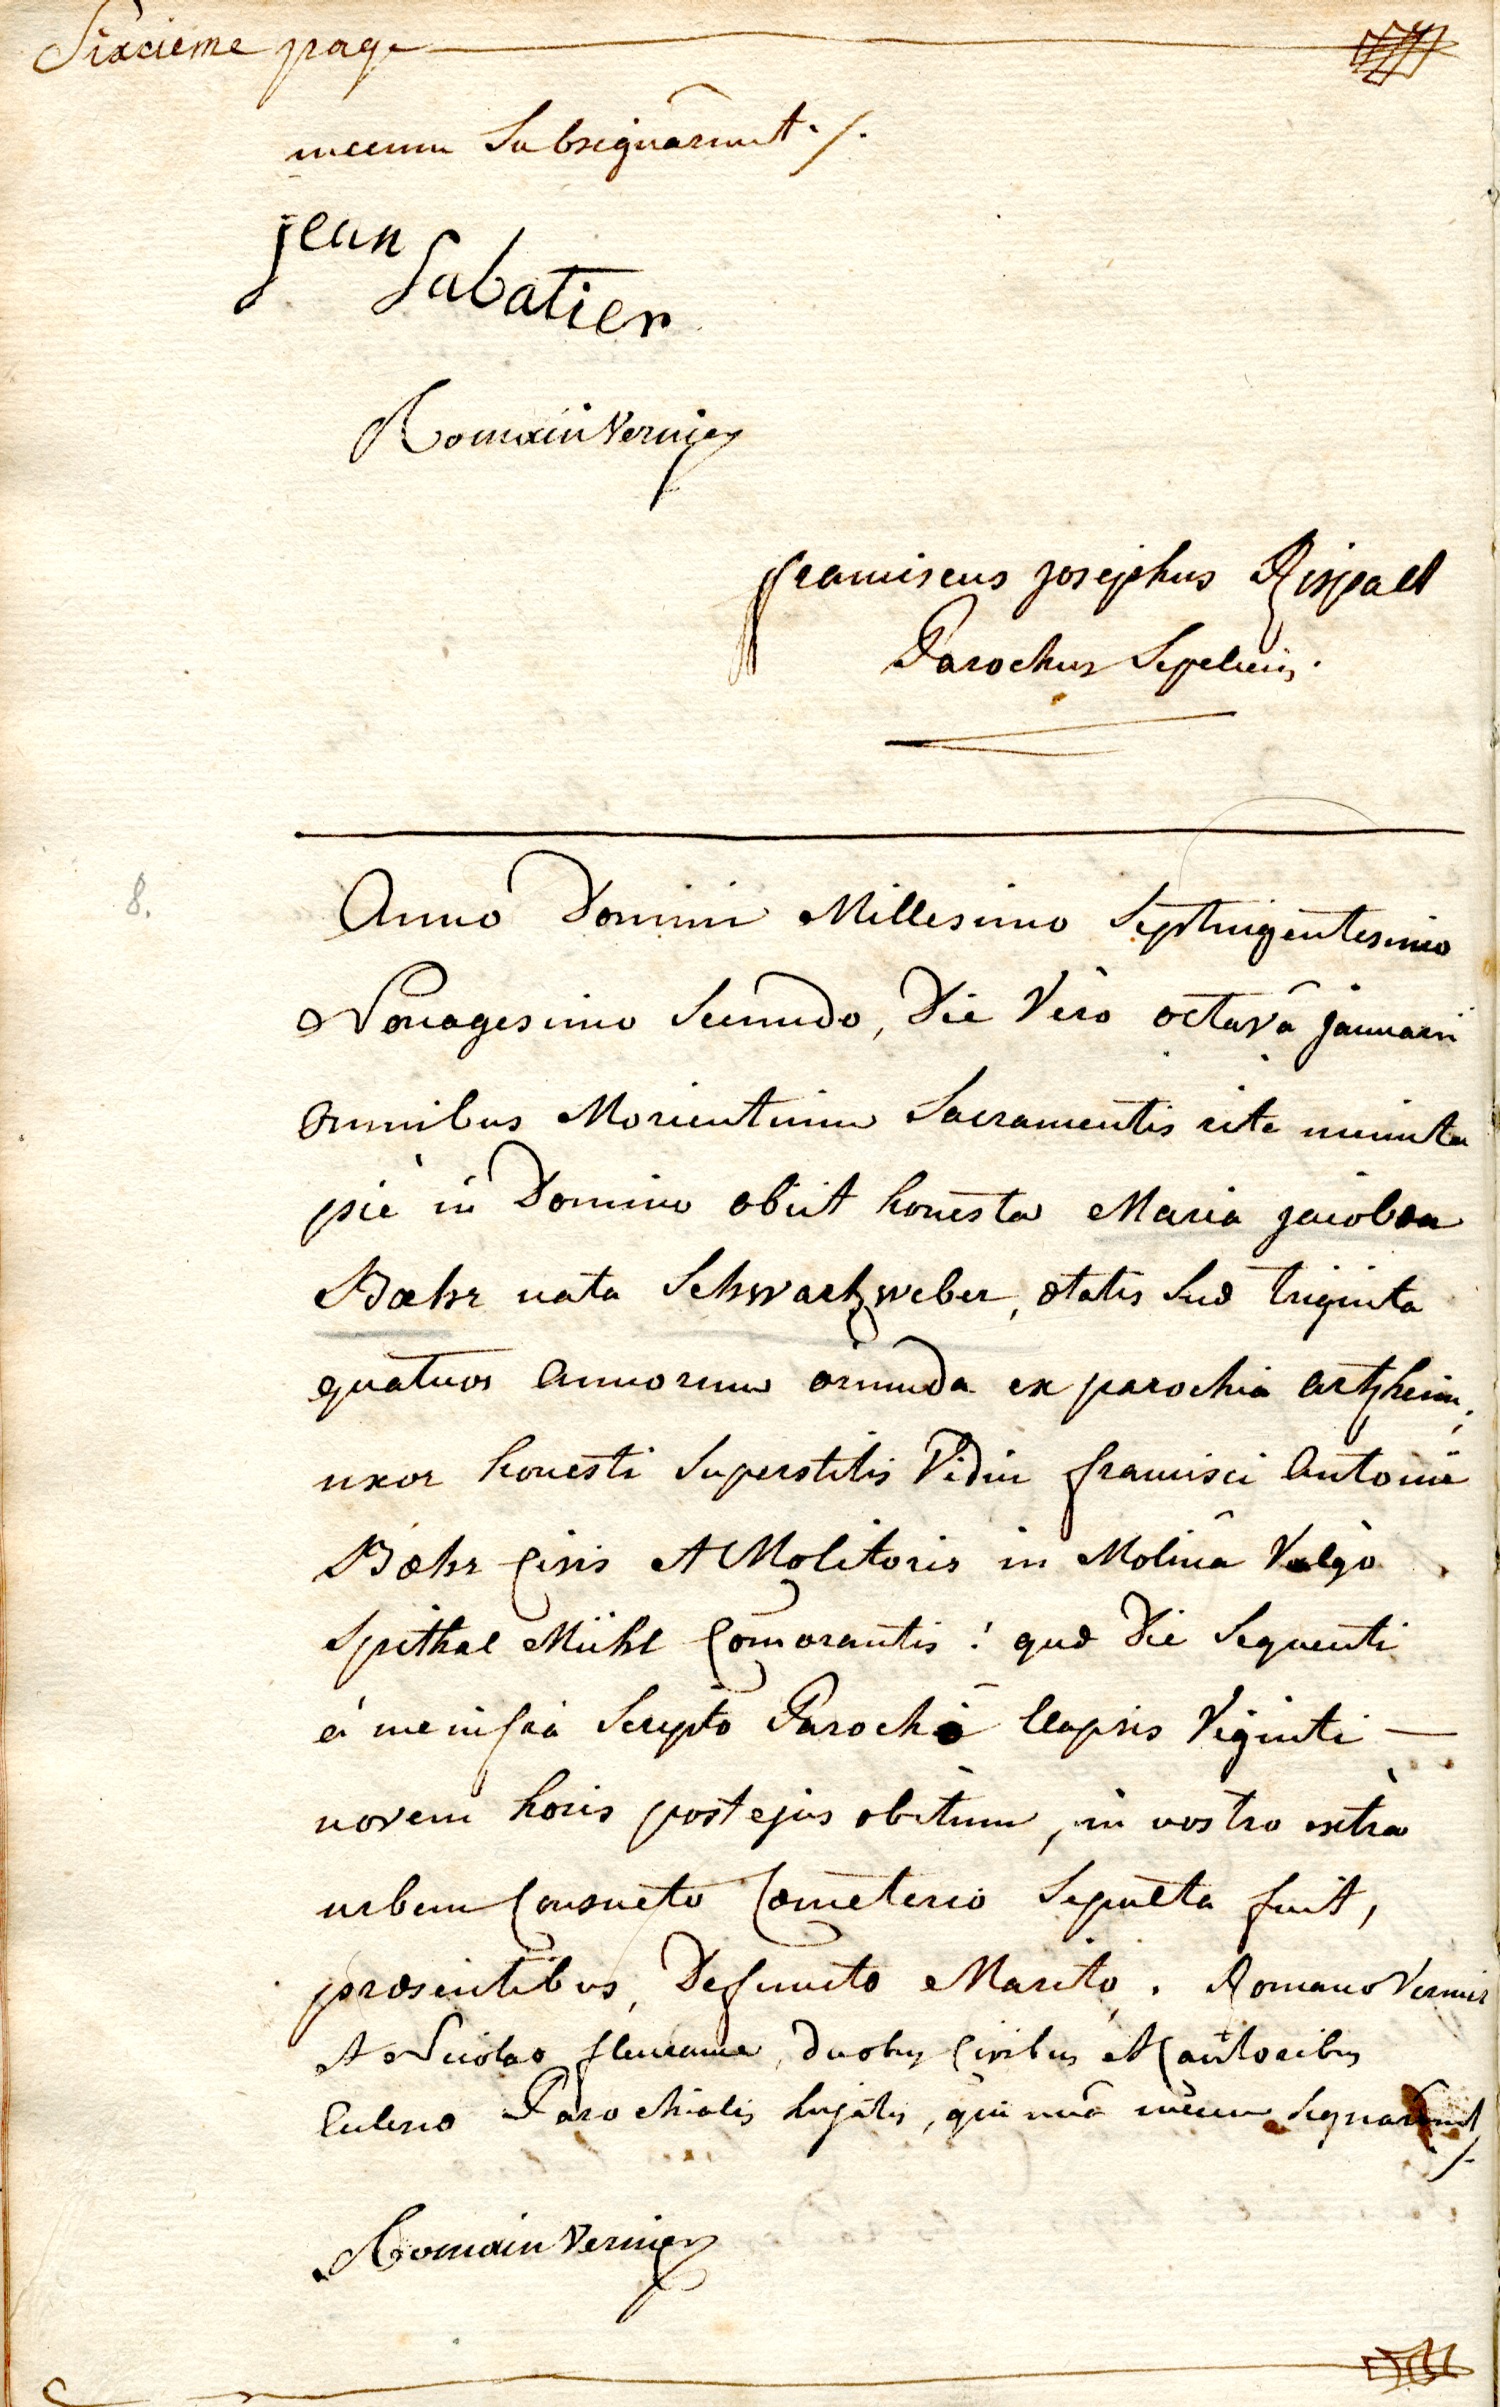 Sixcieme page
mecum Subsignarunt ./.
jean
Sabatier
Romain Vernier
franciscus josephus Rispalt
Parochus Sepeliens.
8.
Anno Domini Millesimo Septingentesimo
Nonagesimo Secundo, Die Vero octavâ januarii
omnibus Morientium Sacramentis rite munita
piè in Domino obiit honesta Maria jacobea
Bæhr nata Schwartzweber, ætatis suæ triginta
quatuor annorum oriunda ex parochia artzheim,
uxor honesti Superstitis Vidui francisci Antonii
Bæhr Civis et Molitoris in Molinâ Vulgò
Spithal Mühl Com̄orantis : quæ Die Sequenti
à me infra Scripto Parocho Elapsis Viginti —
novem horis post ejus obitum, in nostro extra
urbem Consueto Cœmeterio Sepulta fuit,
præsentibus, Defunctæ Marito, . Romano Vernier
et Nicolao, duobus Civibus et Cantoribus
Parochialis hujatis, qui unâ mecum Signarunt
./.
Romain Vernier